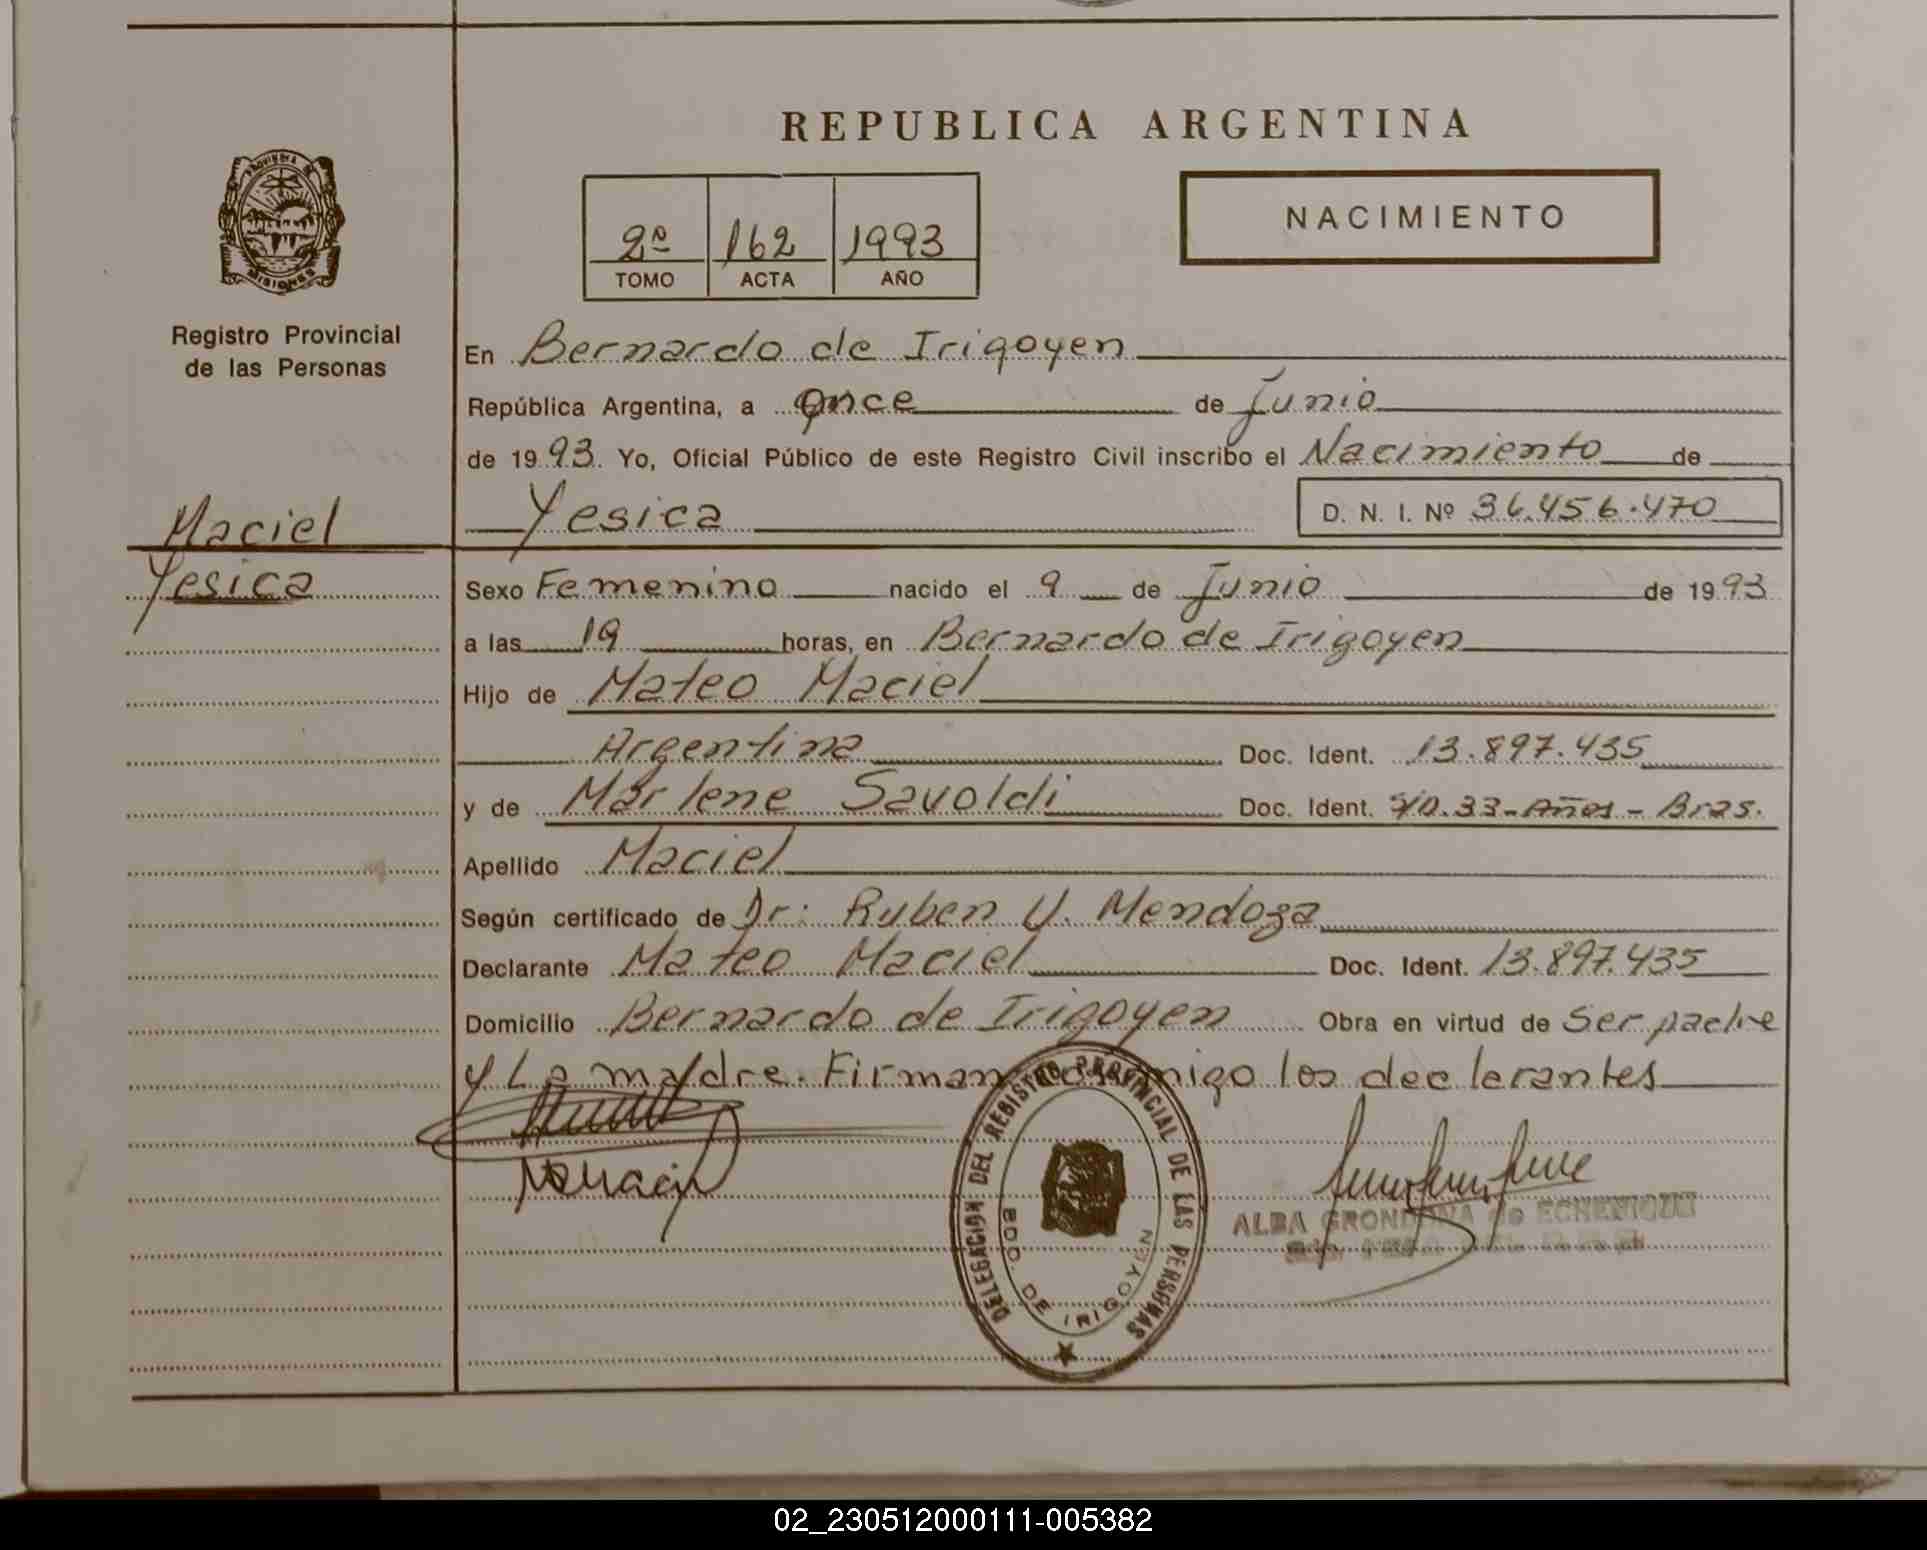 REPUBLICA ARGENTINA
PROVINCIA DE
MISIONES
Registro Provincial
de las Personas
2º 162 1993
TOMO ACTA AÑO
NACIMIENTO
En Bernardo de Irigoyen
República Argentina, a once de Junio
de 1993. Yo, Oficial Público de este Registro Civil inscribo el Nacimiento de
Maciel
Yesica
Yesica D. N. I. Nº 36.456.470
Sexo Femenino nacido el 9 de Junio de 1993
a las 19 horas, en Bernardo de Irigoyen
Hijo de Mateo Maciel
Argentina Doc. Ident. 13.897.435
y de Marlene Savoldi Doc. Ident. S/D. 33-Años-Bras.
Apellido Maciel
Según certificado de Dr: Ruben U. Mendoza
Declarante Mateo Maciel Doc. Ident. 13.897.435
Domicilio Bernardo de Irigoyen Obra en virtud de Ser padre
y La madre. Firman conmigo los declerantes
DELEGACION DEL REGISTRO PROVINCIAL DE LAS PERSONAS
BDO. DE IRIGOYEN
ALBA GRONDONA de
02_230512000111-005382